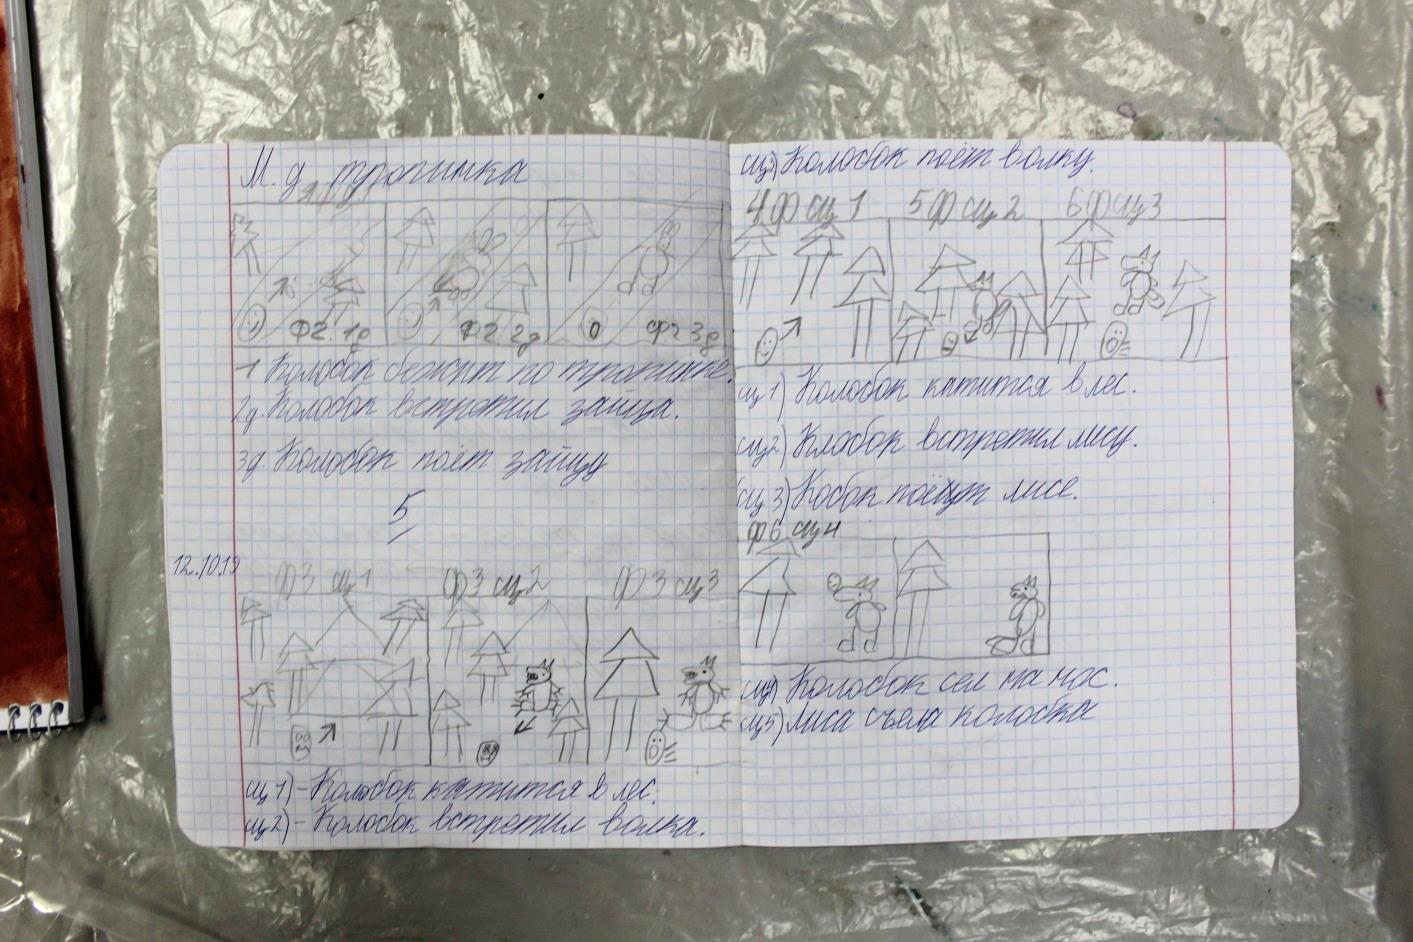 М. д тропинка
ф2. 1д
ф2 2д
ф2 3д
1 Колобок бежит по тропинке.
2д. Колобок встретил зайца.
3д. Колобок поёт зайцу
5
12.10.19
ф3 сц1
ф3 сц2
ф3 сц3
сц1)-Колобок катится в лес.
сц2)-Колобок встретил волка.
сц3) Колобок поёт волку.
4ф сц 1
5ф сц 2
6ф сц 3
сц1) Колобок катится в лес.
сц2) Клобок встретил лису.
сц3) Кобок поёт лисе.
ф6 сц4
Колобок сел на нос.
сц5) Лиса съела колобка